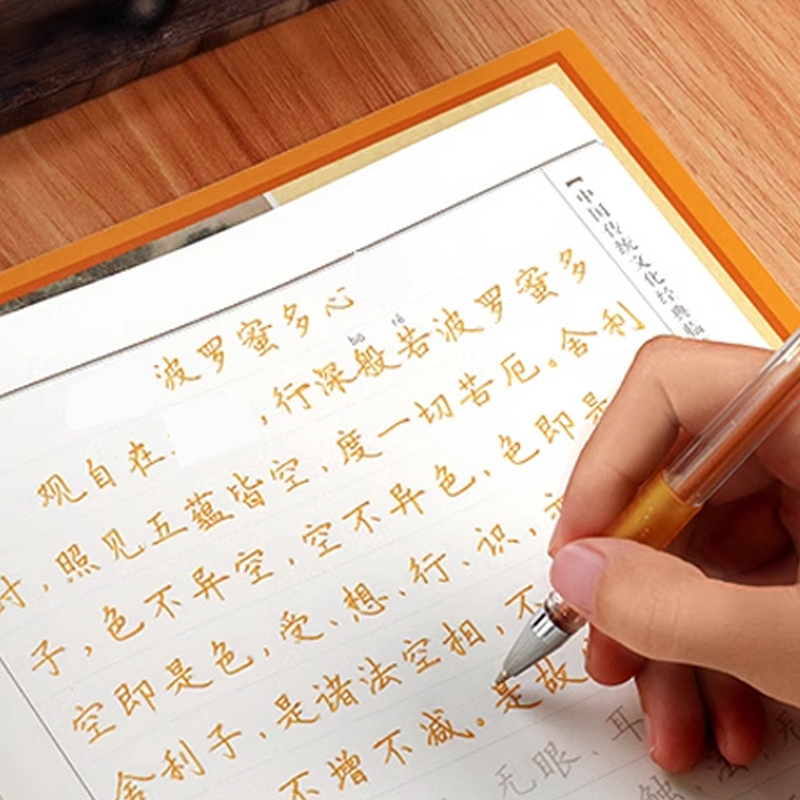 波罗蜜多心
bō rě
观自在,行深般若波罗蜜多
时,照见五蕴皆空,度一切苦厄。舍利
子,色不异空,空不异色,色即是
空即是色,受、想、行、识,
舍利子,是诸法空相,不
不增不减。是故
无眼、耳
触、法
【中国传统文化经典临